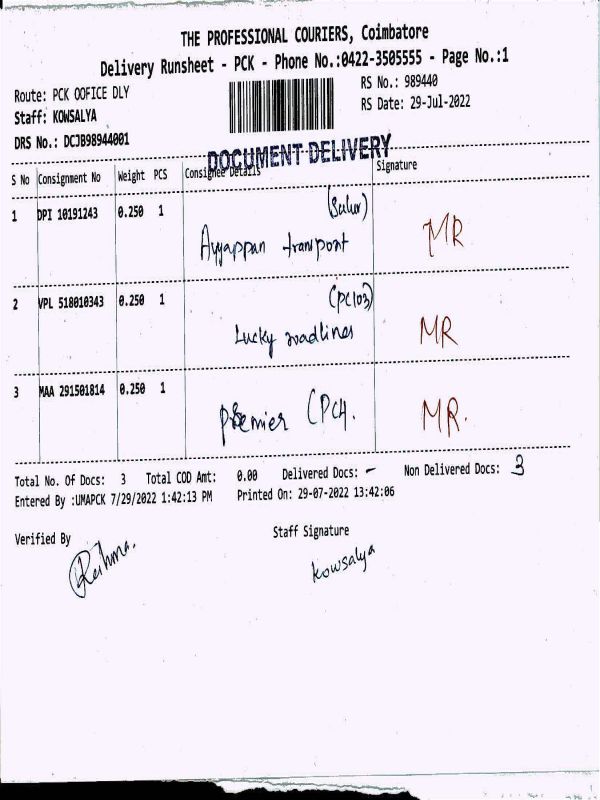 THE PROFESSIONAL COURIERS, Coimbatore
Delivery Runsheet - PCK - Phone No.:0422-3505555 - Page No.:1
Route: PCK OOFICE DLY
RS No.: 989440
Staff: KOWSALYA
RS Date: 29-Jul-2022
DRS No.: DCJB98944001
DOCUMENT DELIVERY
S No Consignment No Weight PCS Consignee Details Signature
1 DPI 10191243 0.250 1 (Sulur)
Ayyappan transport MR
2 VPL 518010343 0.250 1 (PC103)
Lucky roadlines MR
3 MAA 291501814 0.250 1
Premier (PCH. MR.
Total No. Of Docs: 3 Total COD Amt: 0.00 Delivered Docs: - Non Delivered Docs: 3
Entered By :UMAPCK 7/29/2022 1:42:13 PM Printed On: 29-07-2022 13:42:06
Verified By Staff Signature
Kowsalya